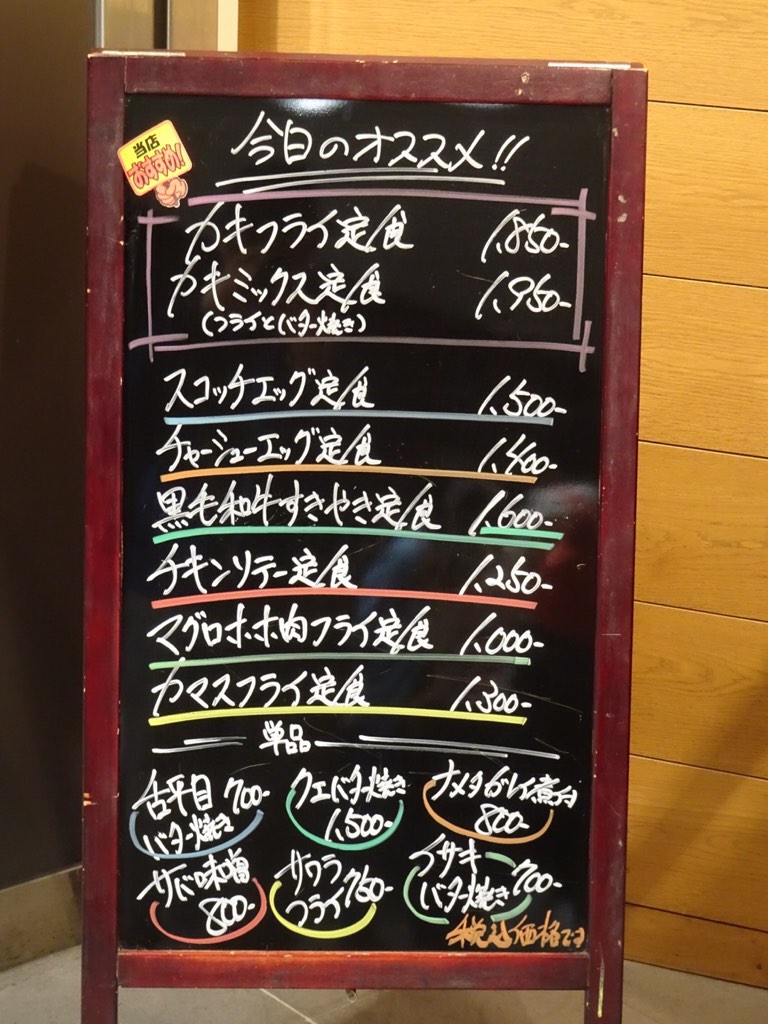 当店
おすすめ!
今日のオススメ!!
カキフライ定食 1,850-
カキミックス定食 1,950-
(フライとバター焼き)
スコッチエッグ定食 1,500-
チャーシューエッグ定食 1,400-
黒毛和牛すきやき定食 1,600-
チキンソテー定食 1,250-
マグロホホ肉フライ定食 1,000-
カマスフライ定食 1,300-
単品
舌平目 700-
バター焼き
クエバター焼き
1,500-
ナメタガレイ煮付
800-
サバ味噌
800-
サワラ
フライ 750-
イサキ
バター焼き 700-
税込価格です